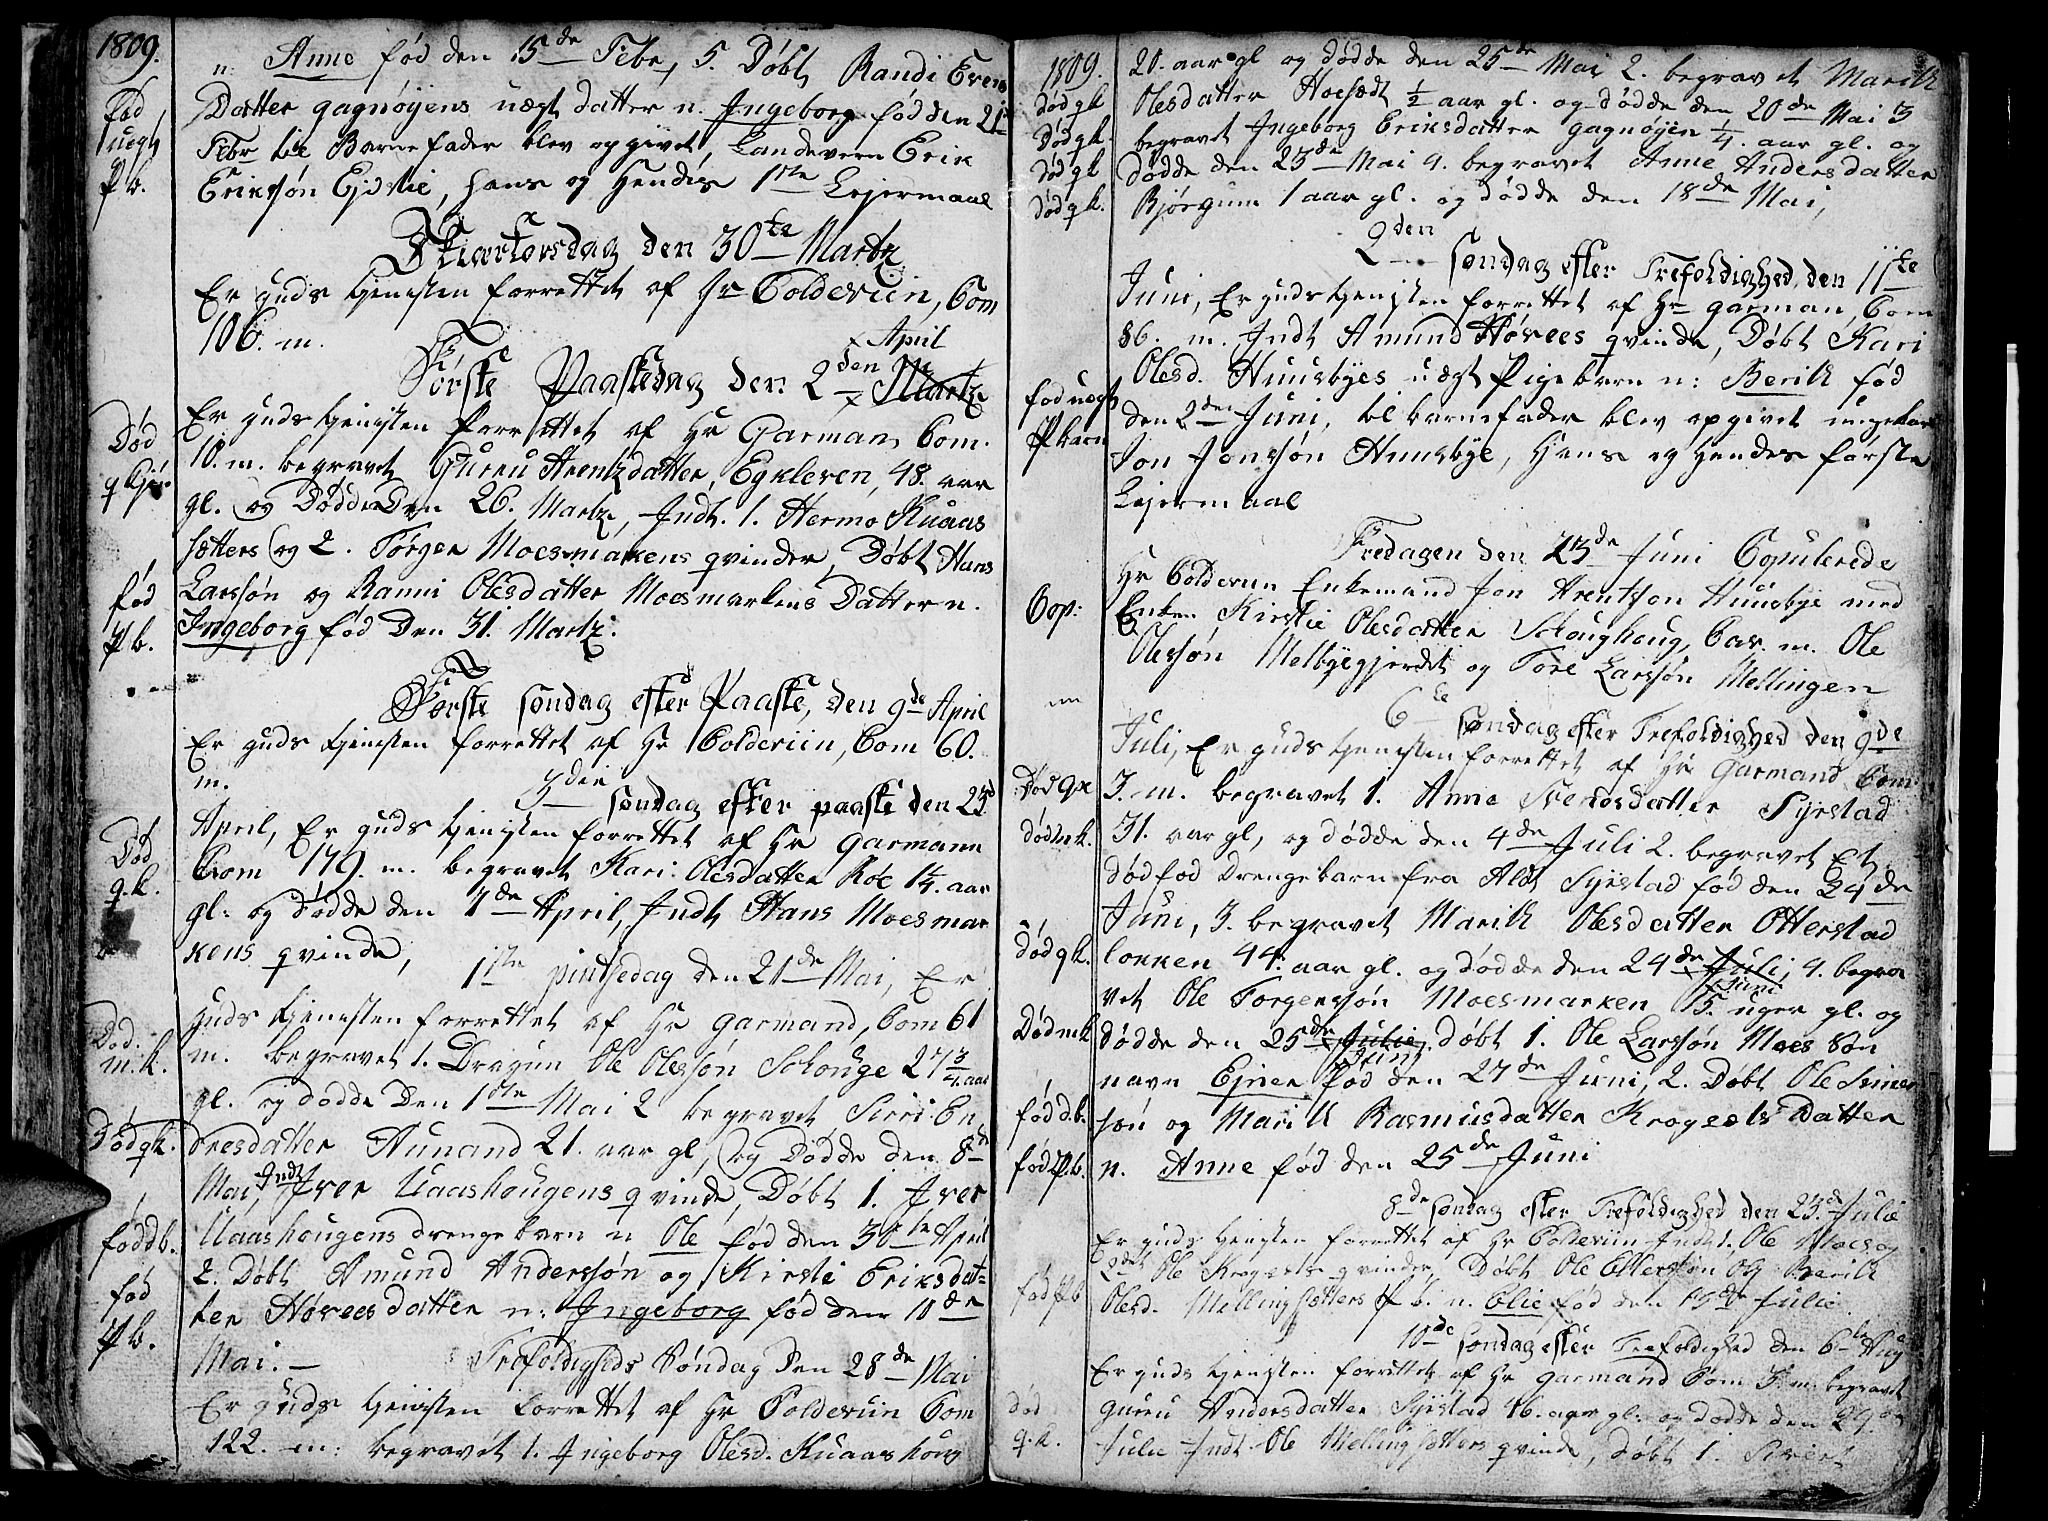 1809.
n: Anne fød den 15de Febr, 5. Døbt Randi Evens
fød
uægt
P b.
Datter gagnøyens uægt datter n. Ingeborg fød den 21
Febr til Barnefader blev opgivet, Landevern Erik
Eriksøn Ejdslie, hans og hendes 1ste Lejermaal
Skiærtorsdag den 30te Martz
Er guds tjenesten forrettet af Hr Colderiin, Com
106. m.
Første Paaskedag den 2den April
Er guds tjenesten forrettet af Hr Garman, Com.
Død
q kjøn
10. m. begravet Guruu Arentzdatter, Egkleven, 48. aar
gl. og Døde Den 26. Martz, Indt. 1. Hermo Kuaas
sætters og 2. Törger Moesmarkens qvinder, Døbt Hans
fød
P b.
Larssøn og Ranni Olesdatter Moesmarkens Datter n.
Ingeborg fød Den 31. Martz.
Første søndag efter Paaske, den 9de April
Er guds tjenesten forrettet af Hr Colderiin, Com 60.
m.
3die søndag efter paaske den 23d
April, Er guds tjenesten forrettet af Hr Garmann
Død
q. k.
Com 179. m. begravet Kari Olesdatter Røe 1 1/4. aar
gl. og dødde den 7de April, Indt Hans Moesmar
kens qvinde,
1ste pintsedag den 21de Mai, Er
guds tjenesten forrettet af Hr Garmand, Com 61
Død.
m. k.
m. begravet 1. Dragun Ole Olessøn Schouge 27 3/4. aar
gl. og dødde Den 1ste Mai 2 begravet Siri En
Død qk.
dresdatter Aunand 21. aar gl, og Dødde den 8de
Mai, Indt Iver Uaashougens qvinde, Døbt 1. Iver
fød d b.
Uaashougens drengebarn n Ole fød den 30te April
fød
P b.
2. Døbt Amund Anderssøn og Kirsti Eriksdat-
ter Høvees datter n: Ingeborg fød den 10de
Mai. —
Trefoldigheds Søndag Den 28de Mai
Er guds tjenesten forrettet af Hr Colderiin Com
122. m: begravet 1. Ingeborg Olesd. Kuaashoug
1809.
Død q k
20. aar gl og dødde den 25de Mai 2. begravet Marith
Død q k.
Olesdatter Hoesædt 1/2 aar gl. og dødde den 20de Mai 3
Død q k
begravet Ingeborg Eriksdatter gagnøyen 1/4. aar gl. og
Død q k.
dødde den 23de Mai 4. begravet Anne Andersdatter
Bjørgum 1 aar gl. og dødde den 18de Mai,
2den søndag efter Trefoldighed, den 11te
Juni, Er guds tjenesten forrettet af Hr Garman, Com
86. m. Indt Amund Høvees qvinde, Døbt Kari
fød uægt
P barn
Olesd. Huusbyes uægt Pigebarn n: Berith fød
den 2den Juni, til barnefader blev opgivet ungekarl
Jon Jonssøn Huusbye, Hans og Hendes første
Lejermaal
Fredagen den 23de Juni Copulerede
Cop:
Hr Colderiin Enkemand Jon Arentsøn Huusbye med
Enken Kirstie Olesdatter Schoughoug, Cav. m. Ole
Olessøn Melbyegjerdet og Tore Larssøn Mellingen
6te søndag efter Trefoldighed den 9de
Juli, Er guds tjenesten forrettet af Hr Garmand Com
3. m. begravet 1. Anne Svendsdatter Syrstad
31. aar gl, og dødde den 4de Juli 2. begravet Et
dødfød Drengebarn fra Aldt Syrstad fød den 29de
Død q k.
Juni, 3. begravet Marith Olesdatter Otterstad
løkken 44. aar gl. og dødde den 24de Juli, Juni 4. begra
Død m k
vet Ole Torgerssøn Moesmarken 5. uger gl. og
dødde den 25de Julie Juni, døbt 1. Ole Larssøn Moes søn
fød d. b.
navn Ejner fød den 27de Juni, 2. Døbt Ole Iver
fød P. b.
søn og Marith Rasmusdatter Krogsæts Datter
n. Anne fød den 25de Juni
8de søndag efter Trefoldighed den 23de Julie
Er guds tjenesten forrettet af Hr Colderiin Indt 1. Ole Moes og
fød P b
2det Ole Krogsets qvinder, Døbt Ole Ellevsøn og Berith
Olesd. Mellingsætters P b. n. Olie fød den 15de Julie
10de søndag efter Trefoldighed den 6te Aug
Er guds tjenesten forrettet af Hr Garmand Com 3. m. begravet
død
q. k.
Guruu Andersdatter Syrstad 16. aar gl. og dødde den 29de
Julie Indt Ole Mellingsætters qvinde, døbt 1. Sivert